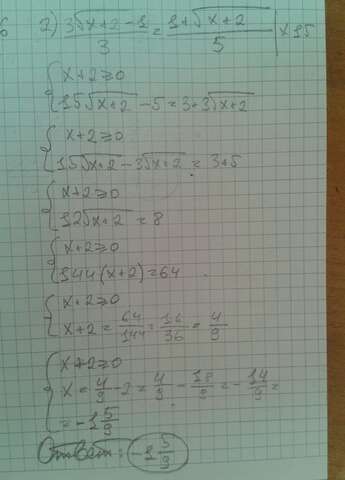 6 2) (3√(x+2) - 1)/3 = (1+√(x+2))/5 | ×15
{ x+2≥0
15√(x+2) - 5 = 3+3√(x+2)
{ x+2≥0
15√(x+2) - 3√(x+2) = 3+5
{ x+2≥0
12√(x+2) = 8
{ x+2≥0
144(x+2) = 64
{ x+2≥0
x+2 = 64/144 = 16/36 = 4/9
{ x+2≥0
x = 4/9 - 2 = 4/9 - 18/9 = - 14/9 =
= -1 5/9
Ответ: -1 5/9